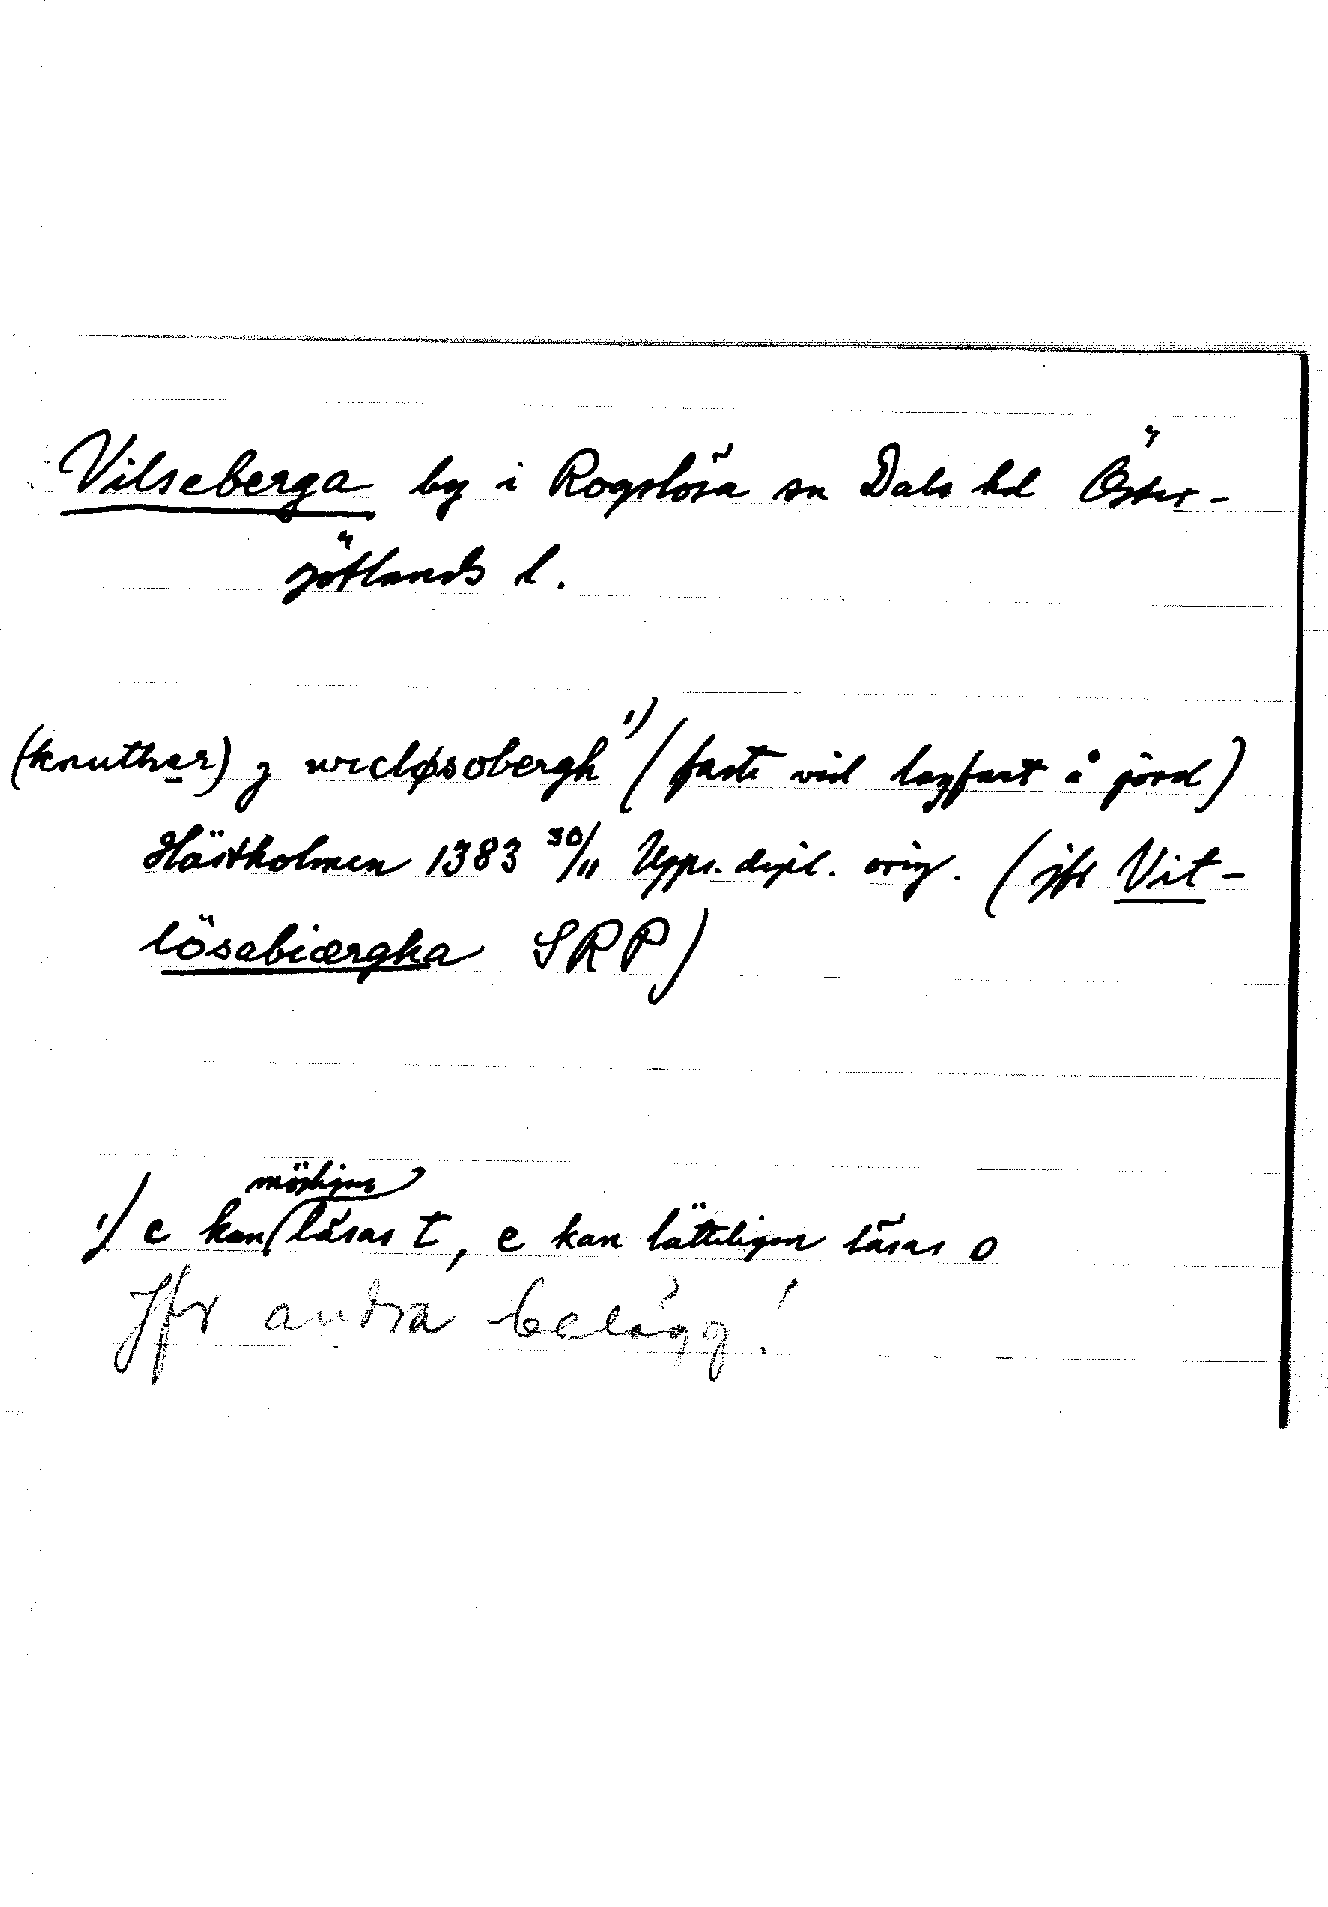 Vilseberga by i Rogslösa sn Dals hd Öster-
götlands l.
(knuther) j wicløsobergh 1) (faste vid lagfart å jord)
Hästholmen 1383 30/11 Upps. dipl. orig. (jfr Vit-
lösabiærgha SRP)
möjligen
1) c kan läsas t, e kan lätteligen läsas o
Jfr andra belägg!